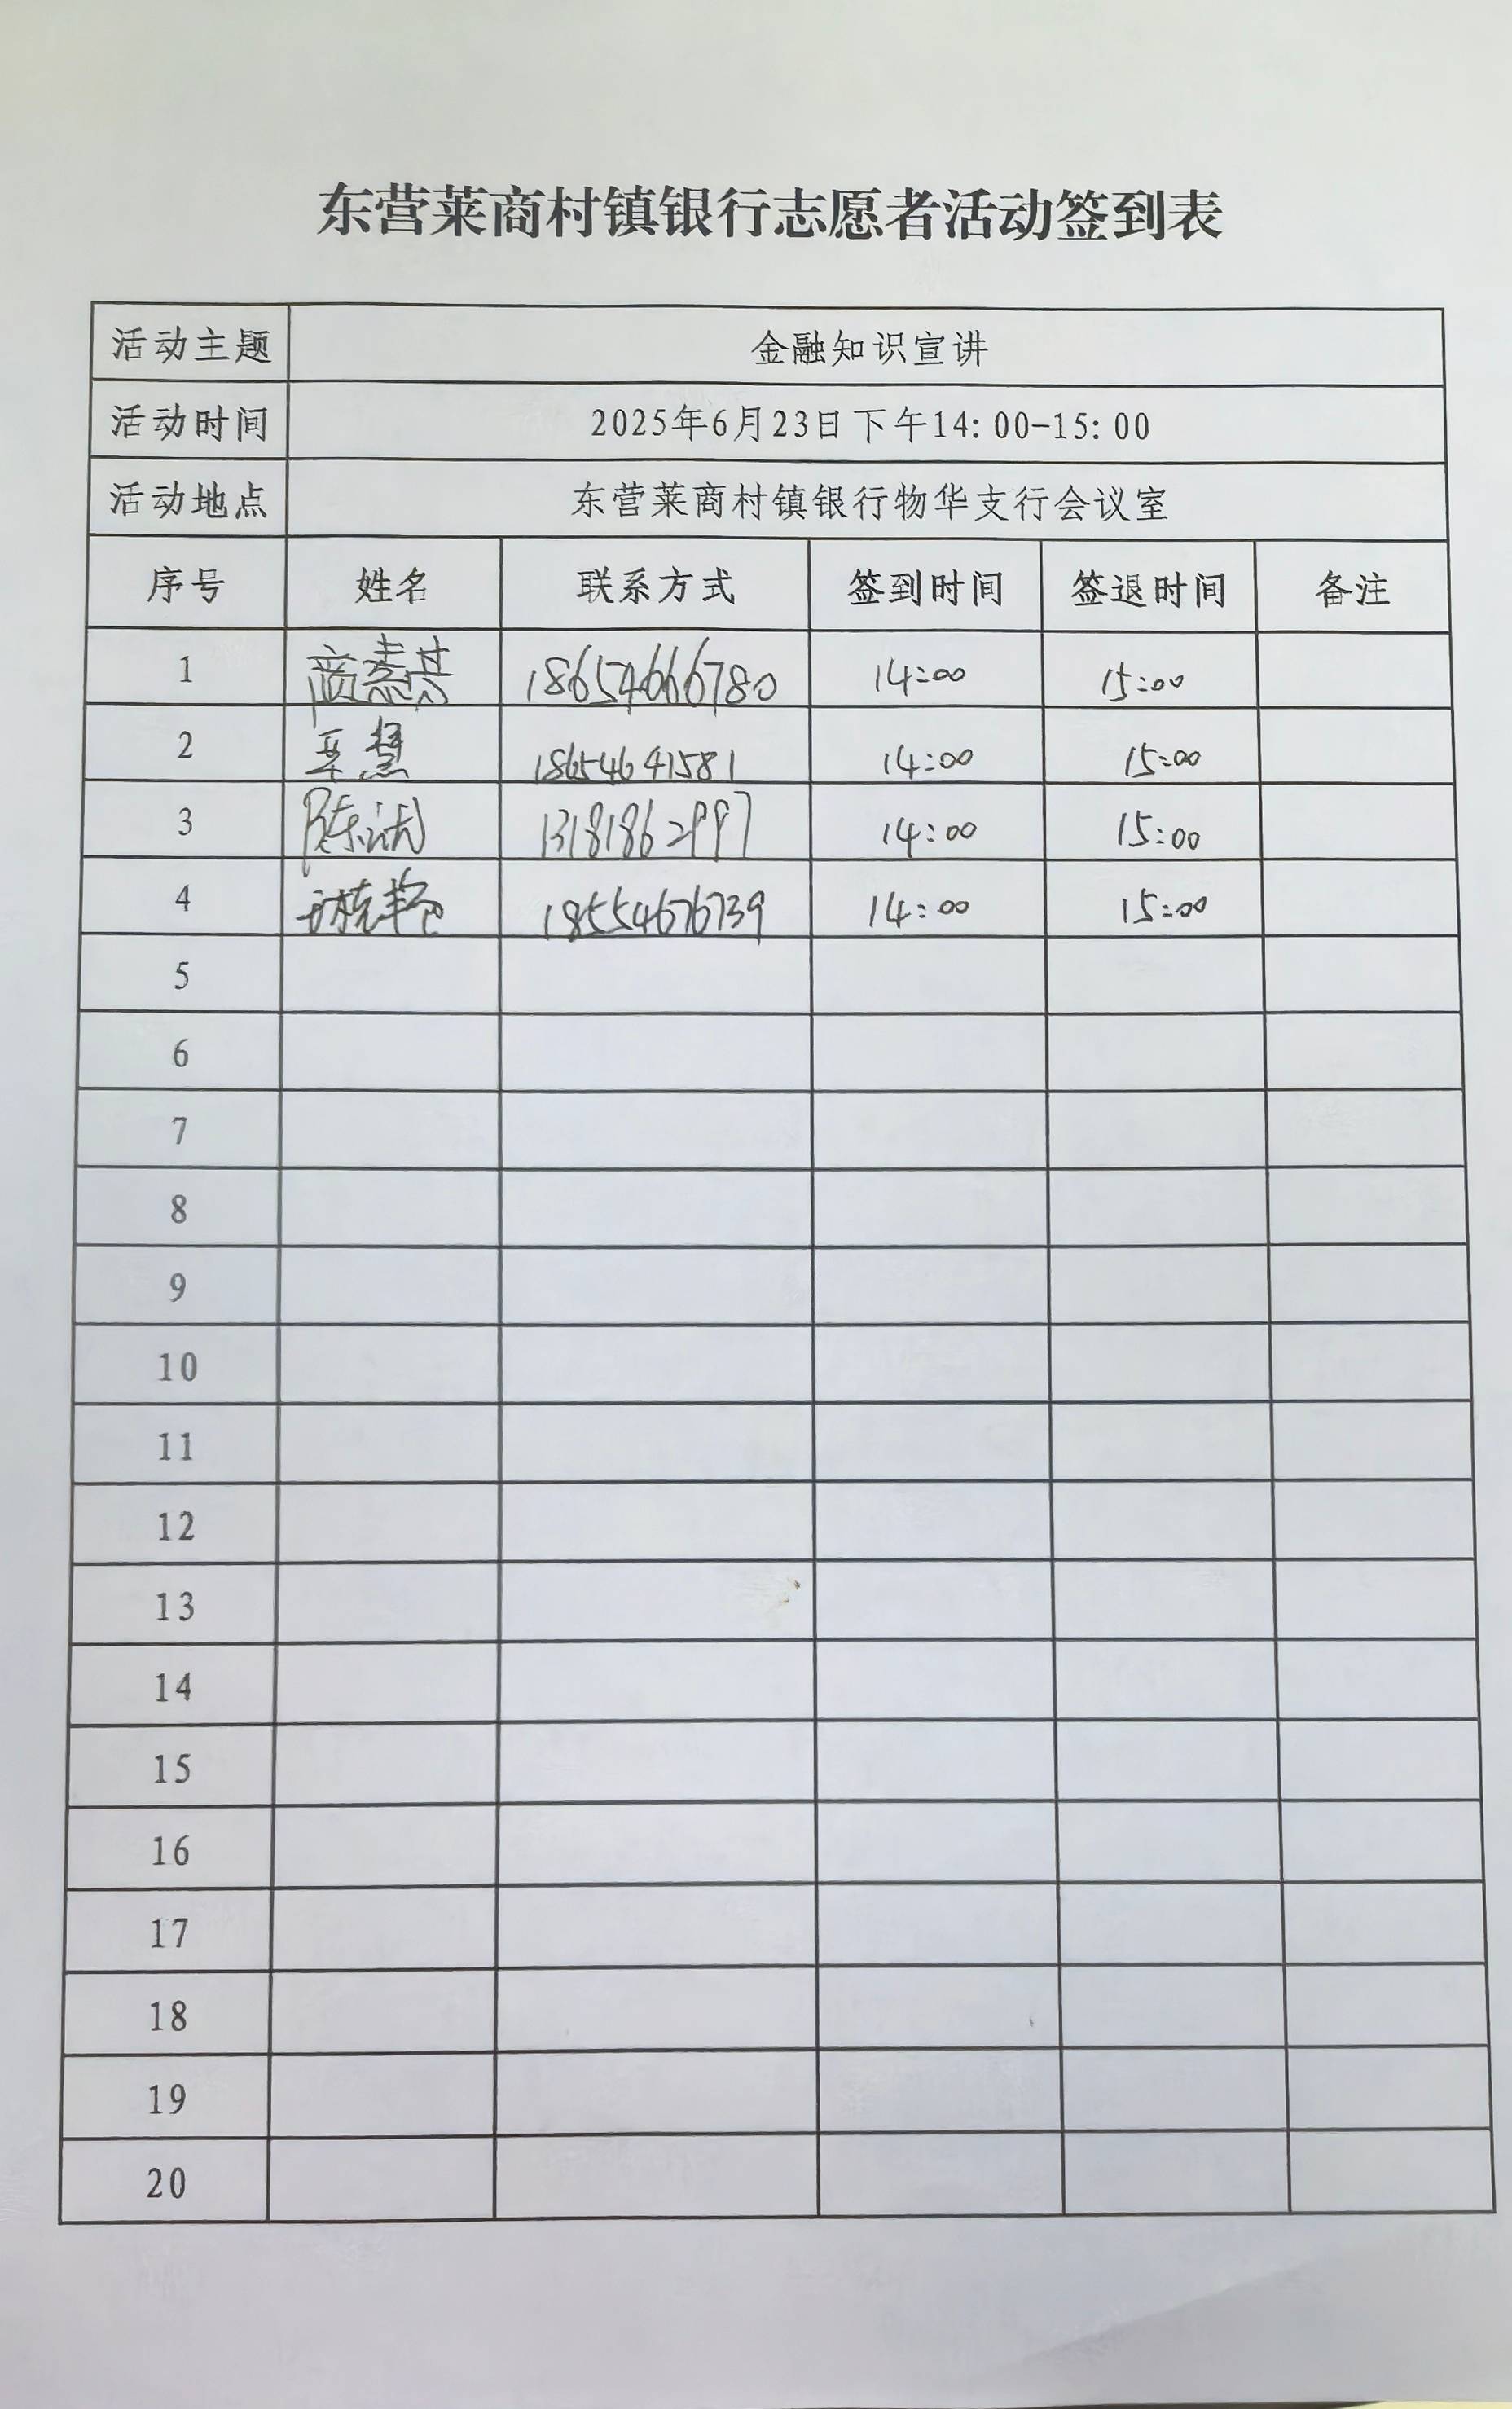 东营莱商村镇银行志愿者活动签到表
活动主题 金融知识宣讲
活动时间 2025年6月23日下午14:00-15:00
活动地点 东营莱商村镇银行物华支行会议室
序号 姓名 联系方式 签到时间 签退时间 备注
1 18654666780 14:00 15:00
2 18654641581 14:00 15:00
3 13181862997 14:00 15:00
4 18554676739 14:00 15:00
5
6
7
8
9
10
11
12
13
14
15
16
17
18
19
20